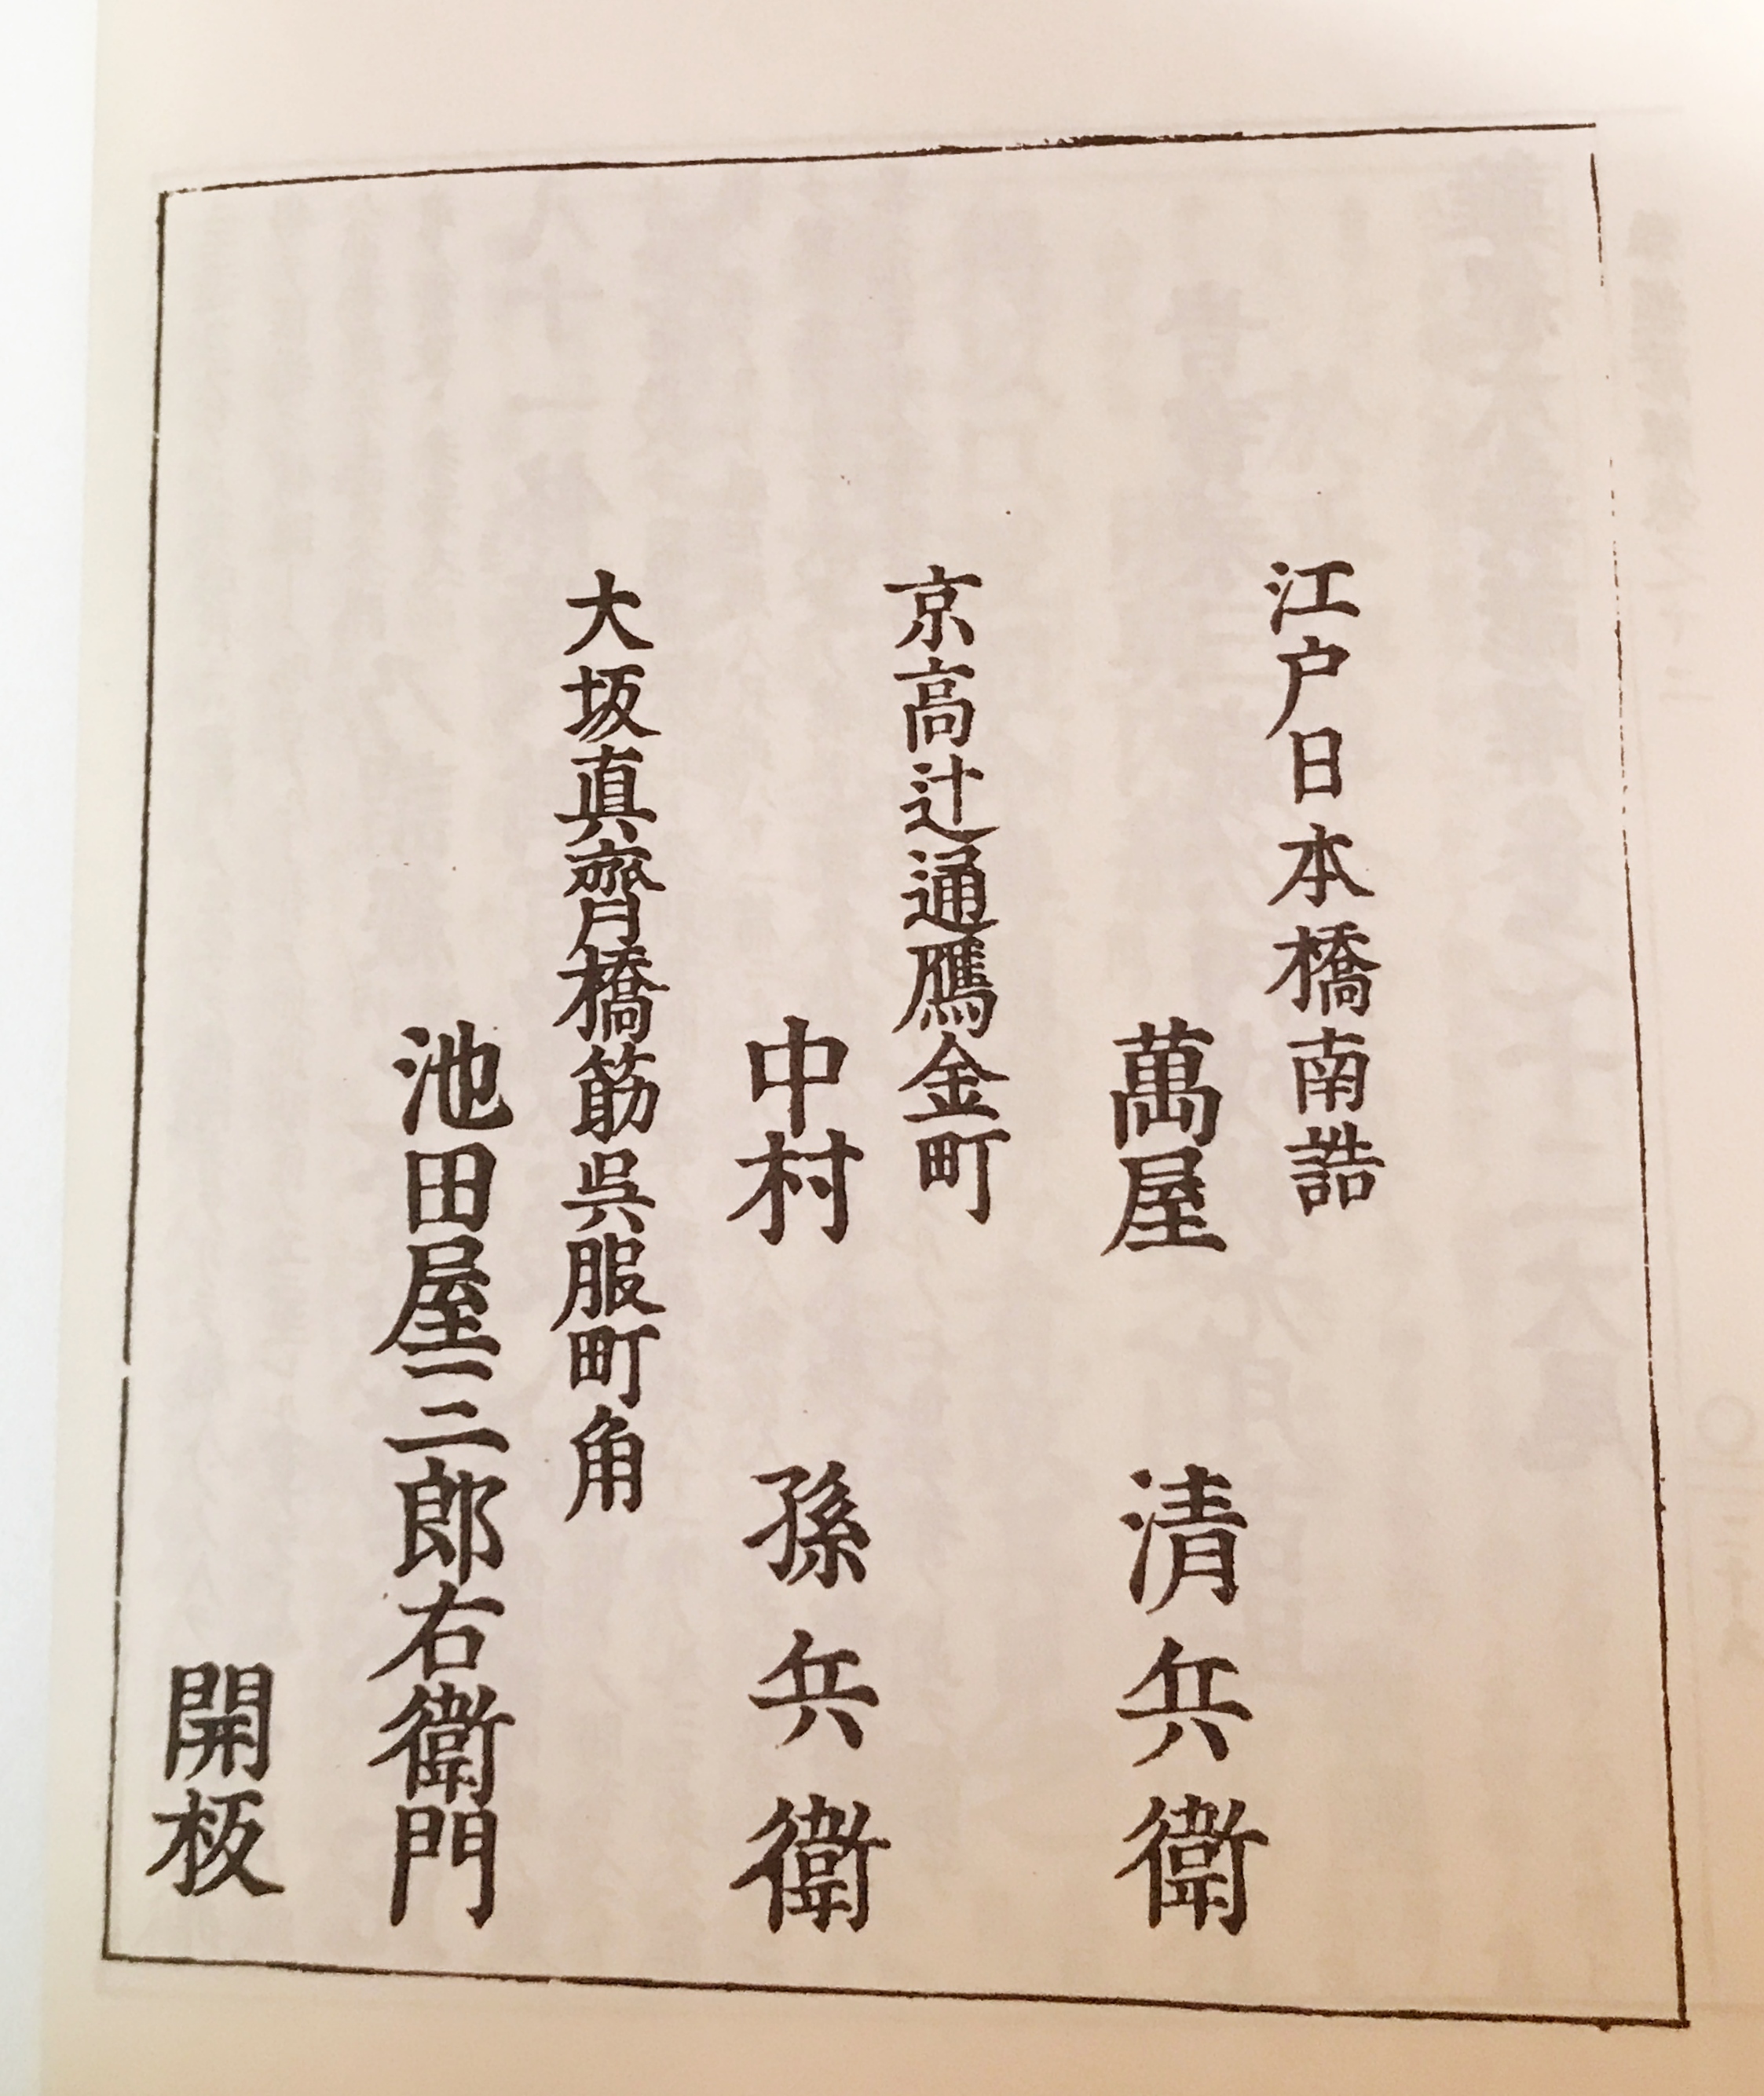 江戸日本橋南詰
萬屋清兵衛
京高辻通鴈金町
中村孫兵衛
大坂真齋橋筋呉服町角
池田屋三郎右衛門
開板